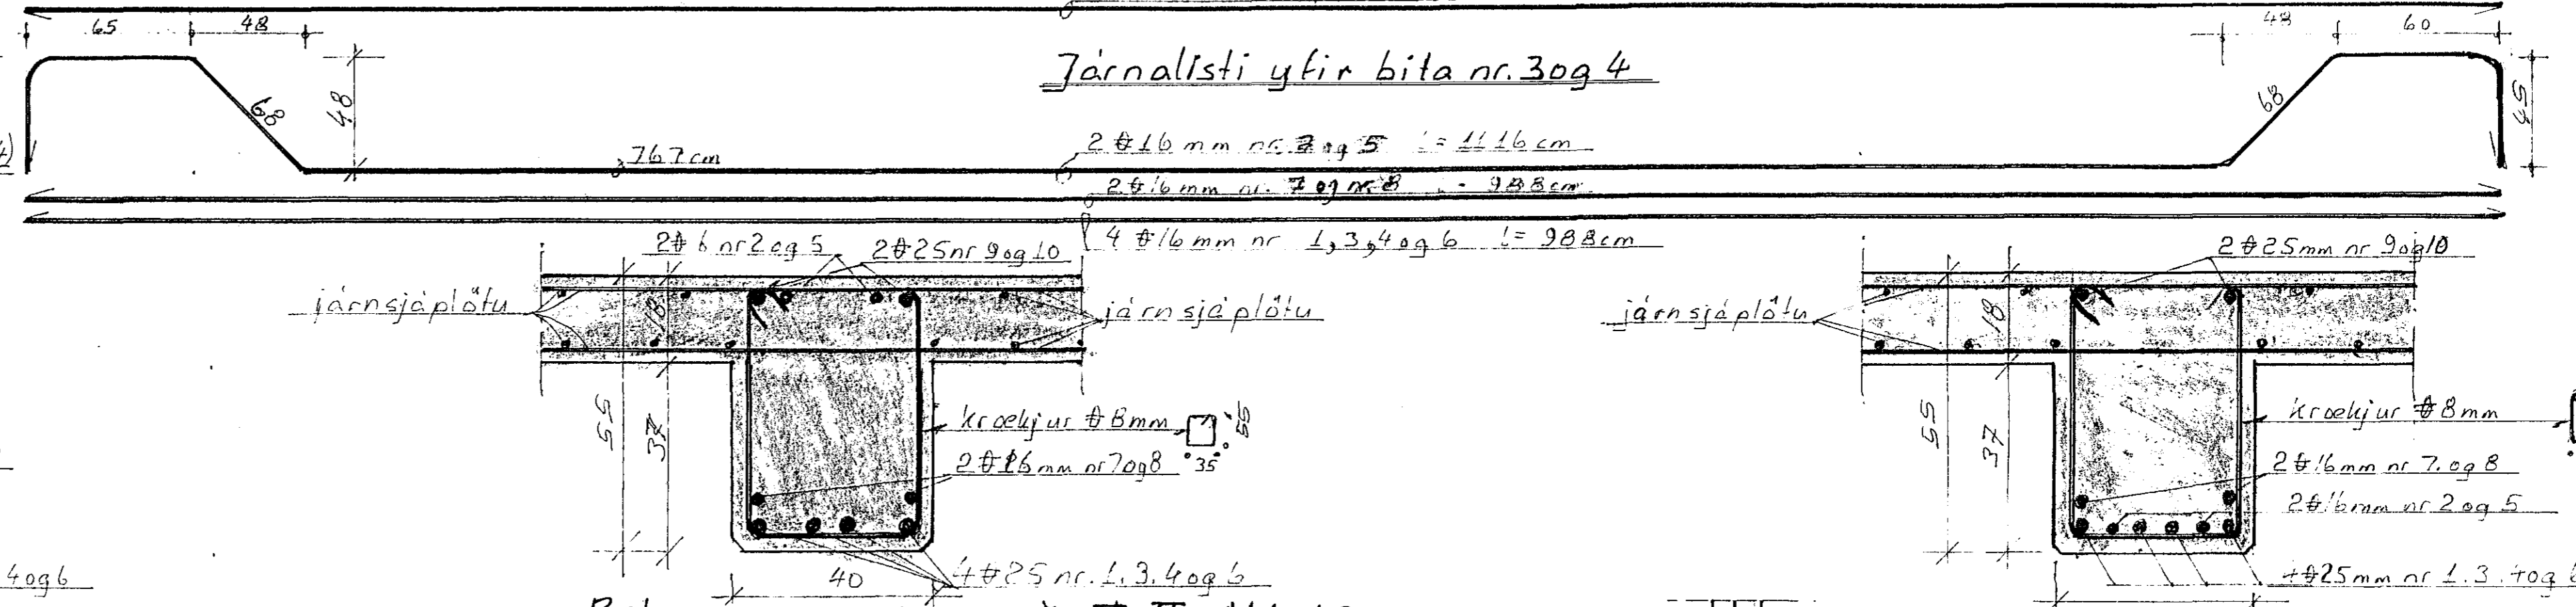 65 48 48 60
Járnalisti yfir bita nr. 3 og 4
68 48 68 55
767 cm
2 # 16 mm nr. 2 og 5 l = 1116 cm
2 # 16 mm nr. 7 og nr. 8 988 cm
4 # 16 mm nr 1, 3, 4 og 6 l = 988 cm
2 # 6 nr 2 og 5
2 # 25 nr 9 og 10
járn sjá plötu
járn sjá plötu
18
55
37
krækjur # 8 mm 55
35
2 # 16 mm nr 7 og 8
4 # 25 nr. 1. 3. 4 og 6
40
2 # 25 mm nr 9 og 10
járn sjá plötu
18
55
37
krækjur # 8 mm
2 # 16 mm nr 7. og 8
2 # 16 mm nr 2 og 5
4 # 25 mm nr 1. 3. 4 og 6
4 og 6